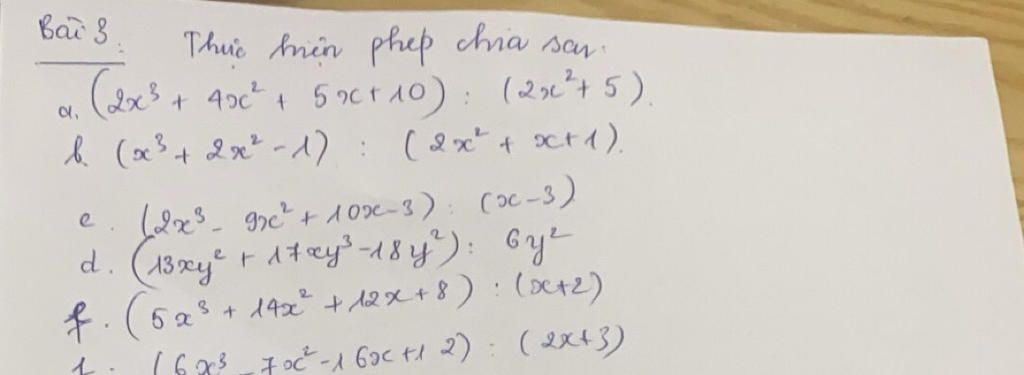 Bài 3: Thực hiện phép chia sau:
a. (2x³ + 4x² + 5x + 10) : (2x² + 5).
b. (x³ + 2x² - 1) : (2x² + x + 1).
c. (2x³ - 9x² + 10x - 3) : (x - 3)
d. (13xy² + 17xy³ - 18y²) : 6y²
f. (5x³ + 14x² + 12x + 8) : (x + 2)
(6x³ - 7x² - 16x + 12) : (2x + 3)